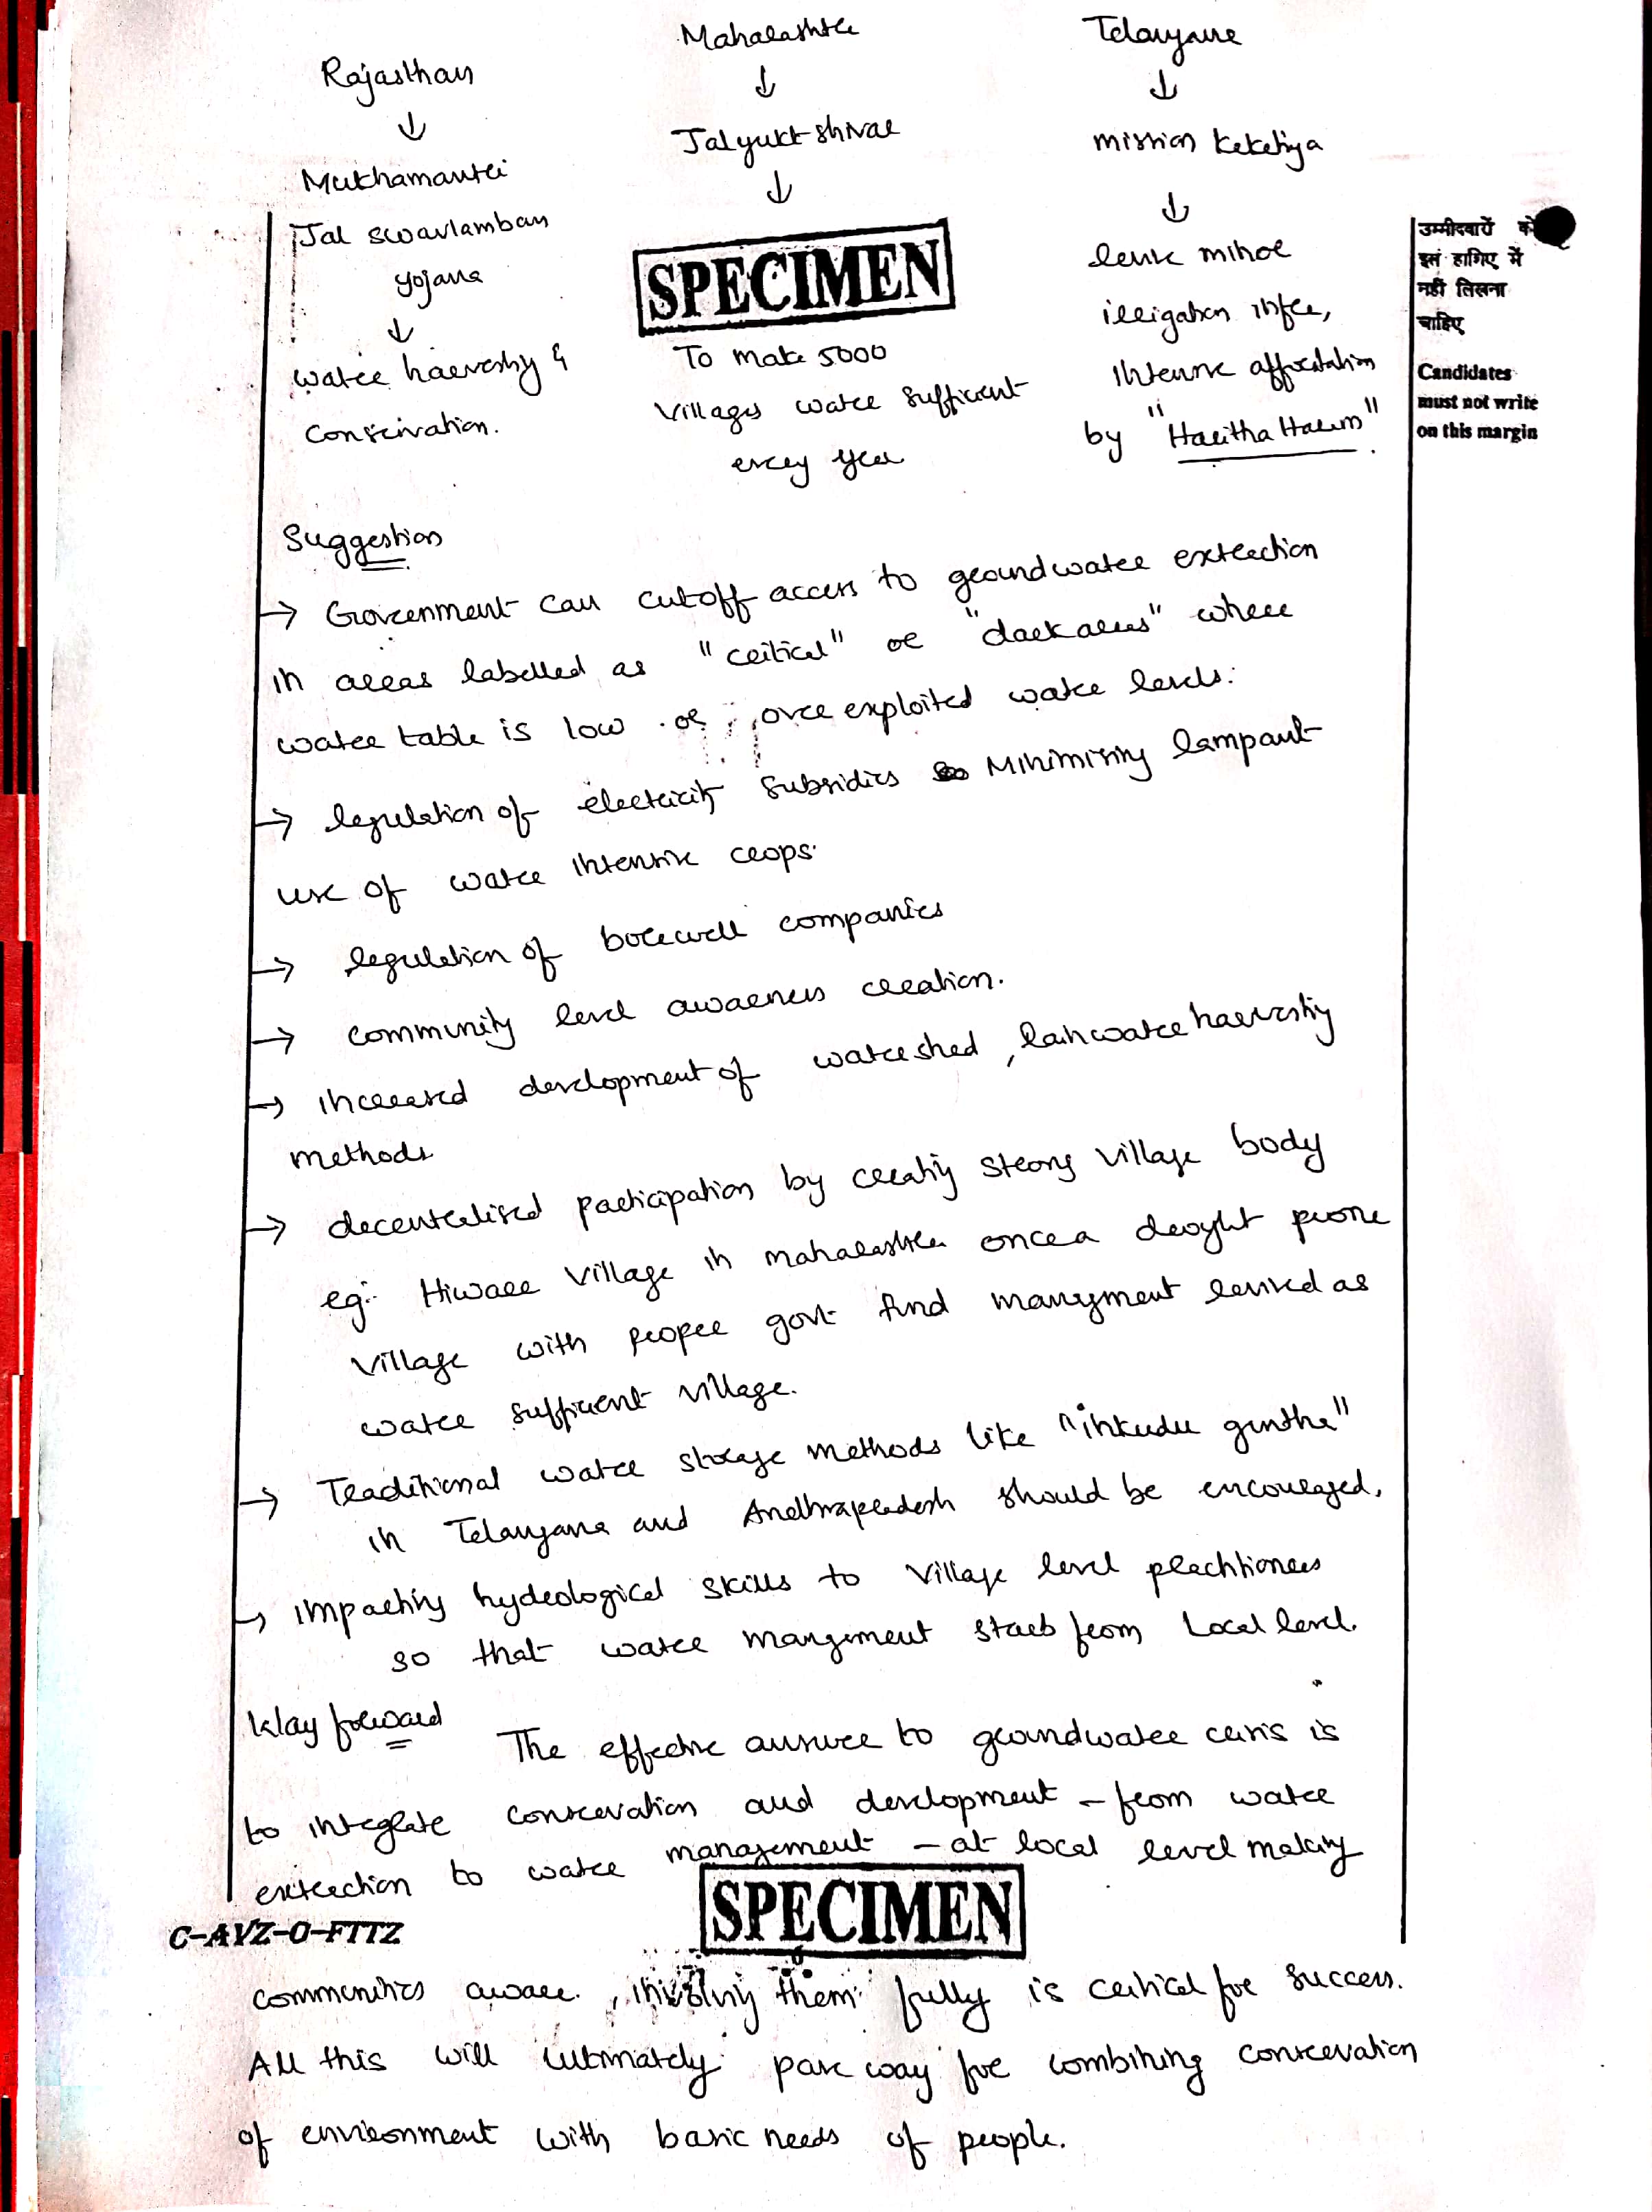 Rajasthan
↓
Mukhamantri
Jal swavlamban
yojana
↓
water harvesting &
conservation.
Maharashtra
↓
Jalyukt shivar
↓
SPECIMEN
To make 5000
villages water sufficient
every year
Telangana
↓
mission kakatiya
↓
revive minor
irrigation infra,
intensive afforestation
by "Haritha Haram".
उम्मीदवारों को
इस हाशिए में
नहीं लिखना
चाहिए
Candidates
must not write
on this margin
Suggestion
→ Government can cutoff access to groundwater extraction
in areas labelled as "critical" or "dark areas" where
water table is low or over exploited water levels.
→ regulation of electricity subsidies minimising rampant
use of water intensive crops.
→ regulation of borewell companies
→ community level awareness creation.
→ increased development of watershed, rainwater harvesting
methods
→ decentralised participation by creating strong village body
eg: Hiware village in maharashtra once a drought prone
village with proper govt fund mangment revived as
water sufficient village.
→ Traditional water storage methods like "inkudu guntha"
in Telangana and Andhrapradesh should be encouraged.
→ imparting hydrological skills to village level practitioners
so that water mangement starts from local level.
Way forward
The effective answer to groundwater crisis is
to integrate conservation and development - from water
extraction to water management - at local level making
C-AVZ-O-FTTZ
SPECIMEN
communities aware, involving them fully is critical for success.
All this will ultimately pave way for combining conservation
of environment with basic needs of people.